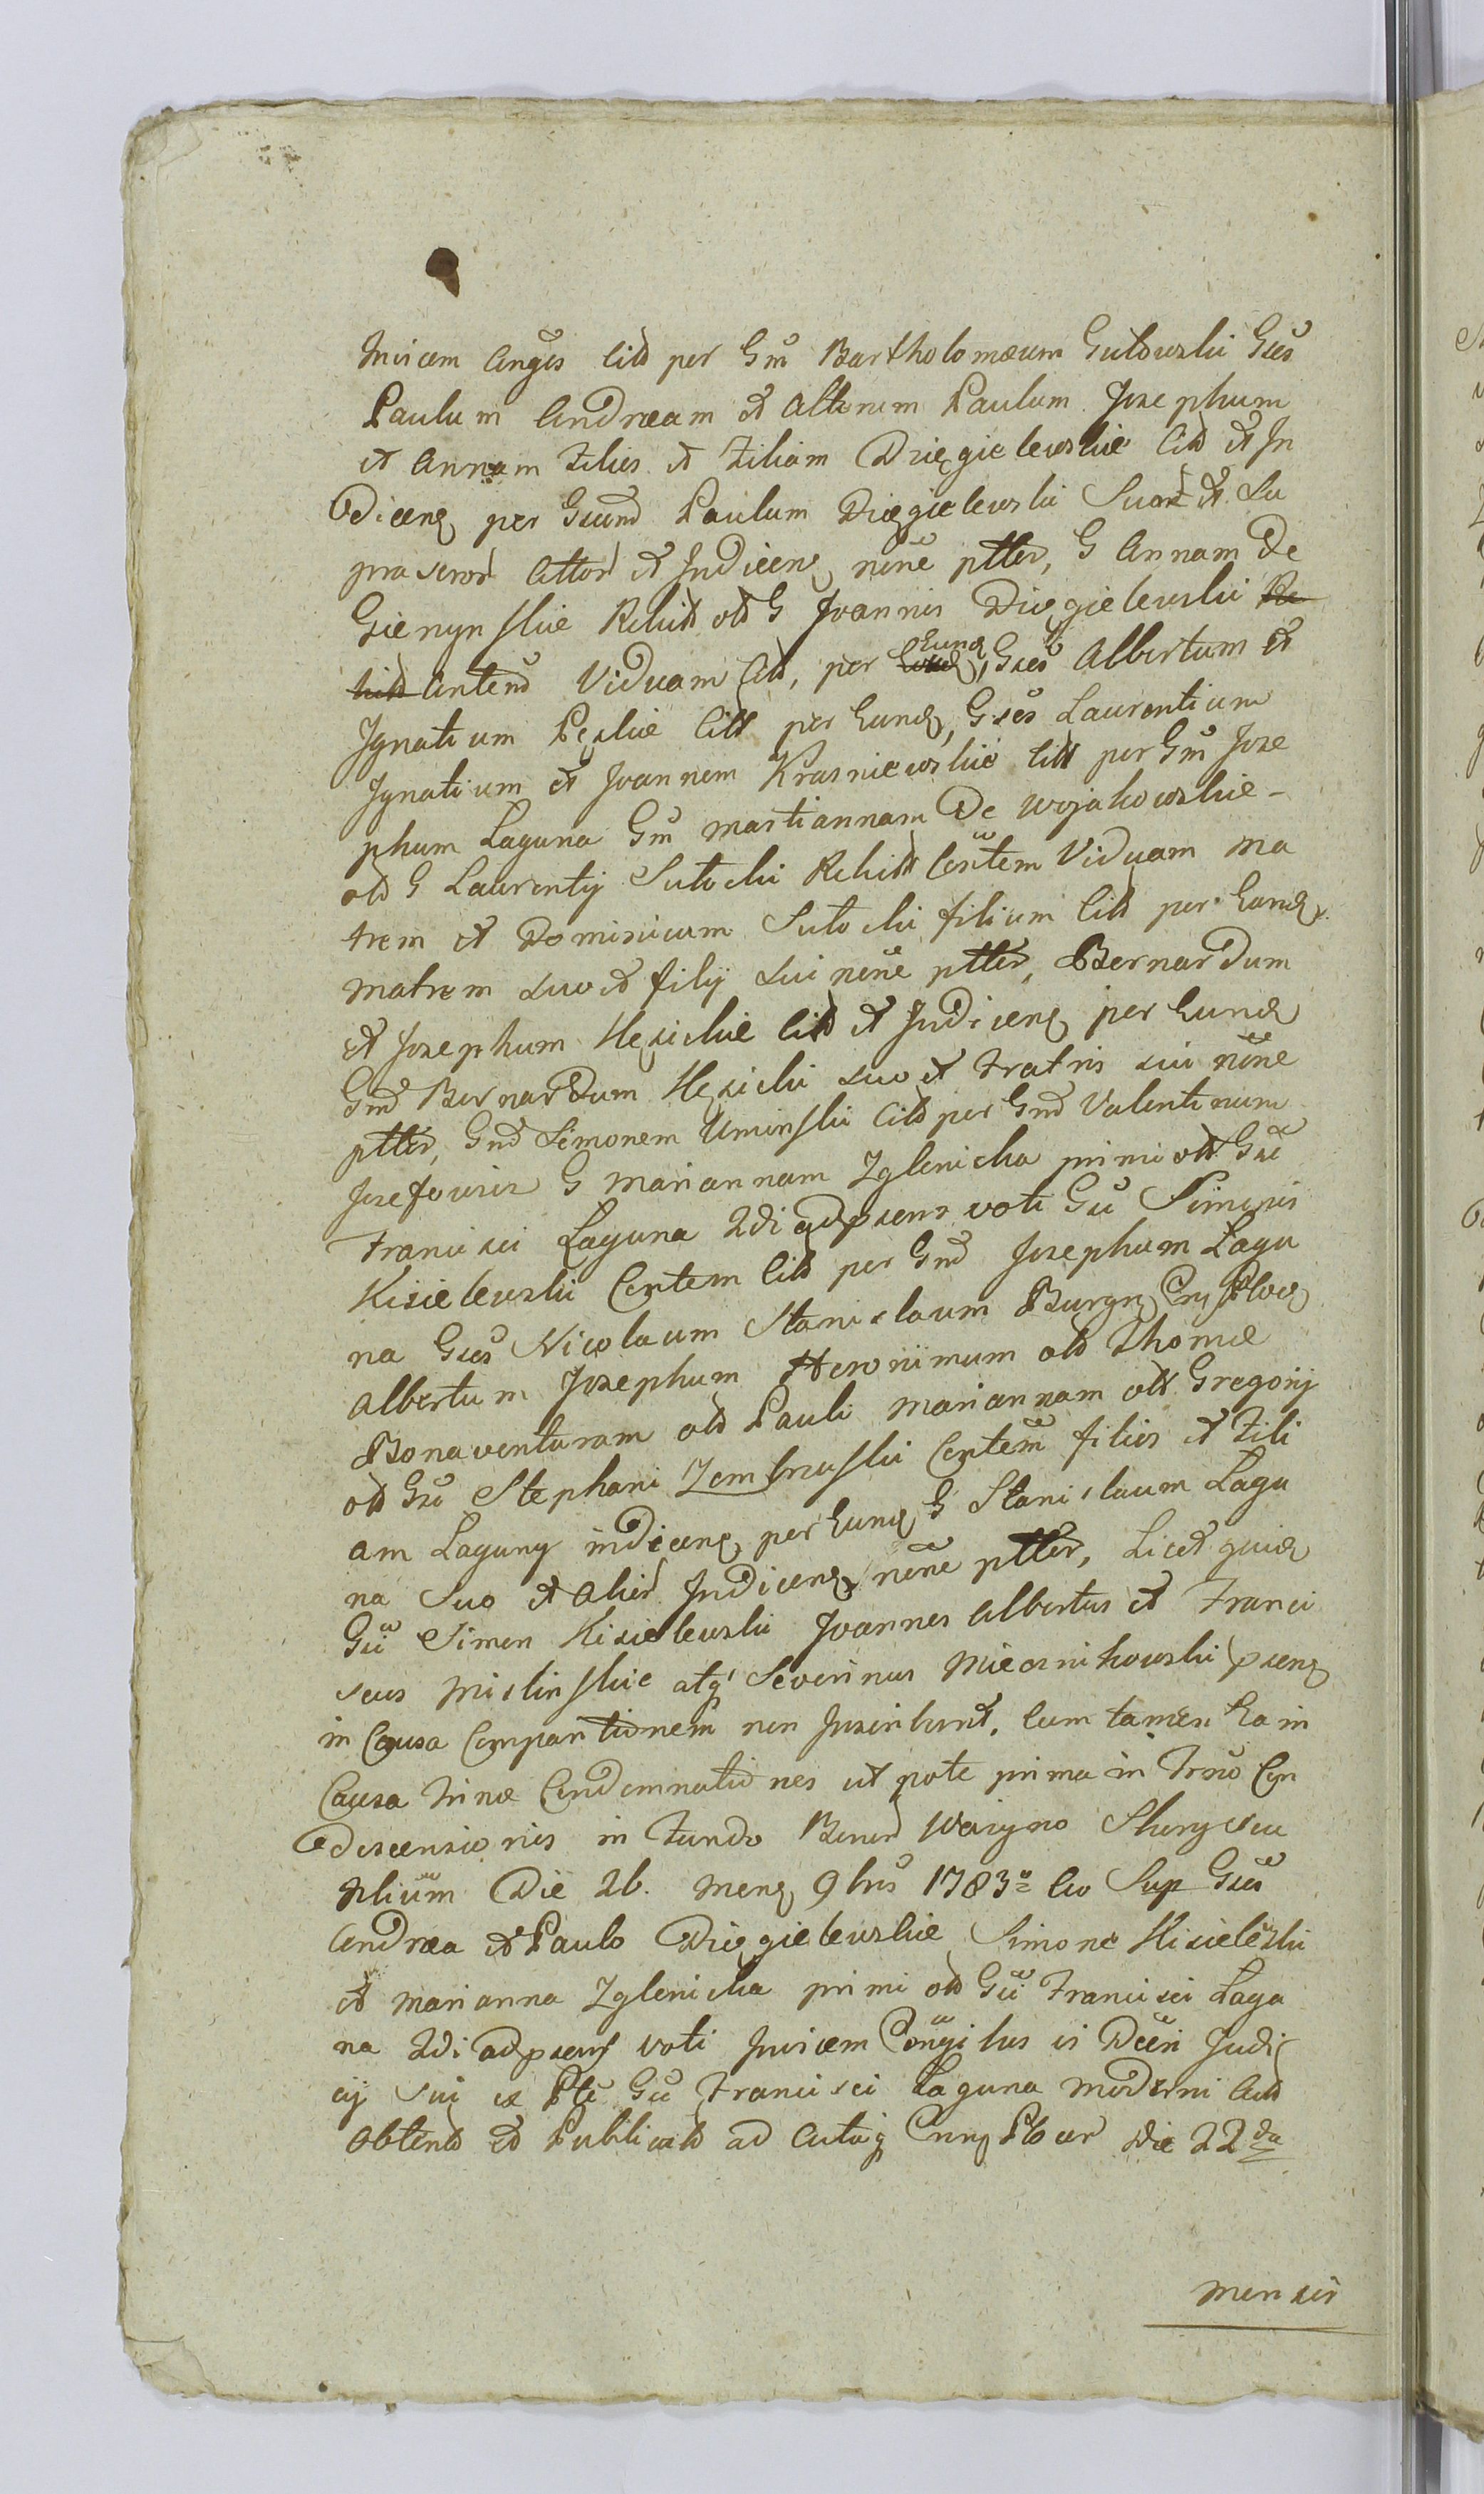 Invicem Conges Citt per Gm Bartholomæum Gutowski Gses
Paulum Andræam et Alterum Paulum Josephum
et Annam Filios et Filiam Dzięgielewskie Citt et In
Diceng per Gsum Paulum Dzięgielewski Suor et Su
prascror Attor et Indiceng nõne ptter, G Annam De
Gienynskie Relict olt G Joannis Dzięgielewski Re
lict Contem Viduam Citt, per Eund Eund, Gses Albertum et
Ignatium Pęskie Citt per Eund, Gses Laurentium
Ignatium et Joannem Krasniewskie Citt per Gm Jose
phum Laguna Gm Martiannam De Wojakowskie -
olt G Laurentij Sutocki Relict Contem Viduam Ma
trem et Dominicum Sutocki filium Citt per Eand
Matrem Suo et filij Sui nõne ptter, Bernardum
et Josephum Kęsickie Citt et Indiceng per Eund
Gmd Bernardum Kęsicki Suo et Fratris sui nõne
ptter, Gnd Simonem Uminski Citt per Gnd Valentinum
Josefowicz G Mariannam Zglenicka primi olt Gsi
Francisci Laguna 2di ad psens voti Gsi Simonis
Kisielewski Contem Citt per Gnd Josephum Lagu
na Gses Nicolaum Stanislaum Burgr Cng Ploce
Albertum Josephum Heronimum olt Thomæ
Bonaventuram olt Pauli Mariannam olt Gregorij
olt Gsi Stephani Zembrzuski Contem filios et Fili
am Laguny indiceng per Eund G Stanislaum Lagu
na Suo et Alior Indiceng nõne ptter, Licet quid
Gsi Simon Kisielewski Joannes Albertus et Franci
scus Mislinskie atq Severinus Miecznikowski psens
in Causa Comparitionem non Inscribunt. Cum tamen Ea in
Causa trinæ Condemnationes ut pote prima in Trno Con
descensionis in Fundo Bonor Waizyno Skorych seu
Die 26. Mens 9bris 1783o Co Sup Gses
Andræa et Paulo Dzięgielewskie Simone Kisielewski
et Marianna Zglenicka primi olt Gsi Francisci Lagu
na 2di ad psens voti Invicem Congibus vi Decri Judi
cij sui ex Pte Gsi Francisci Laguna Moderni Act
Obtent et Publicat ad Actaq Cnng Plocen Die 22da
Mensis